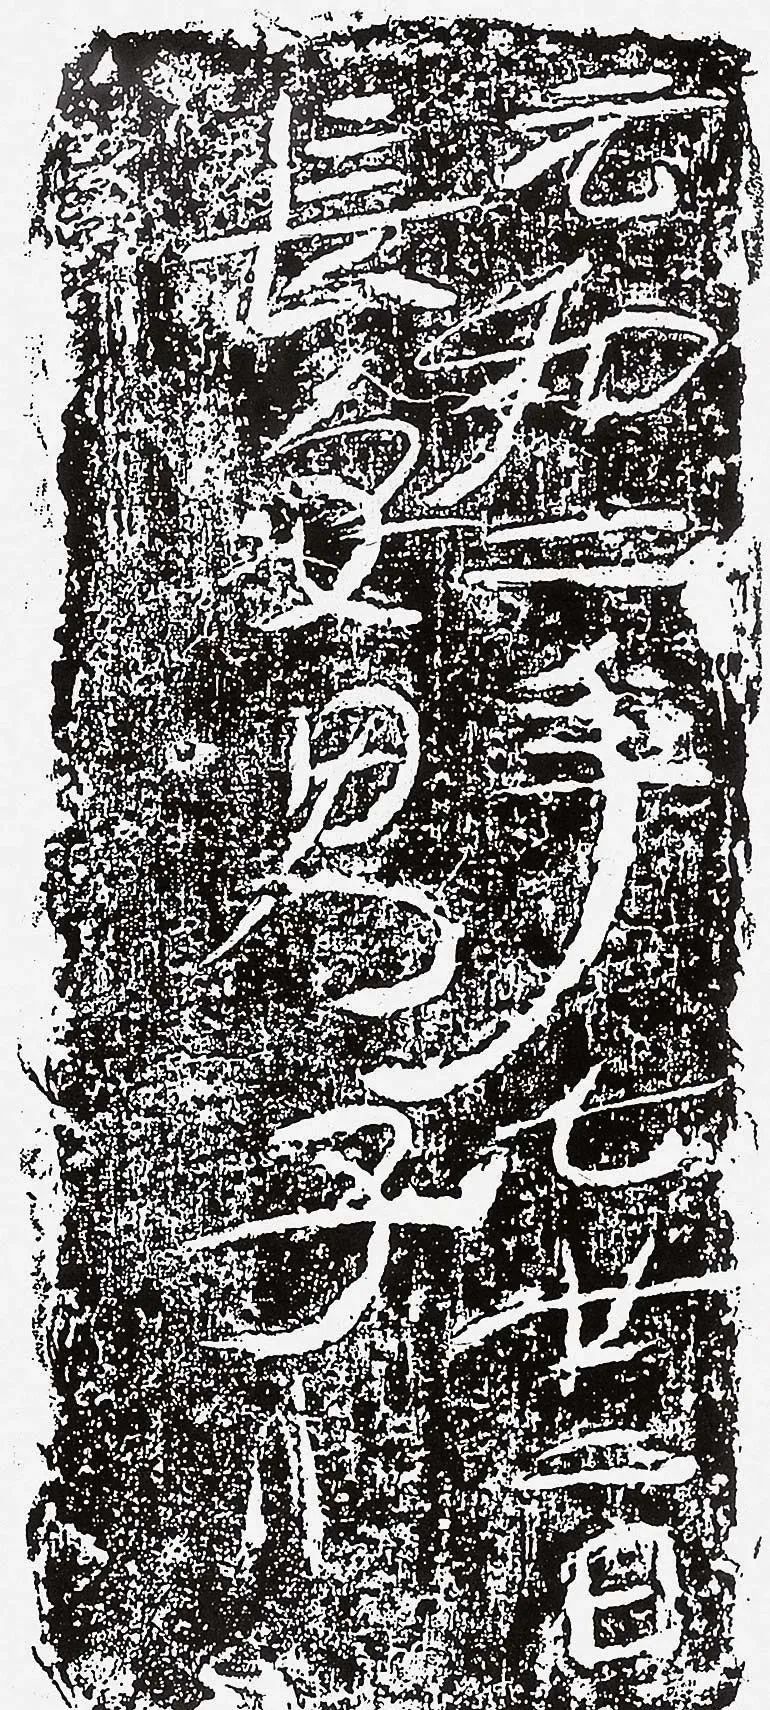 元和二年七廿二日
長安男子